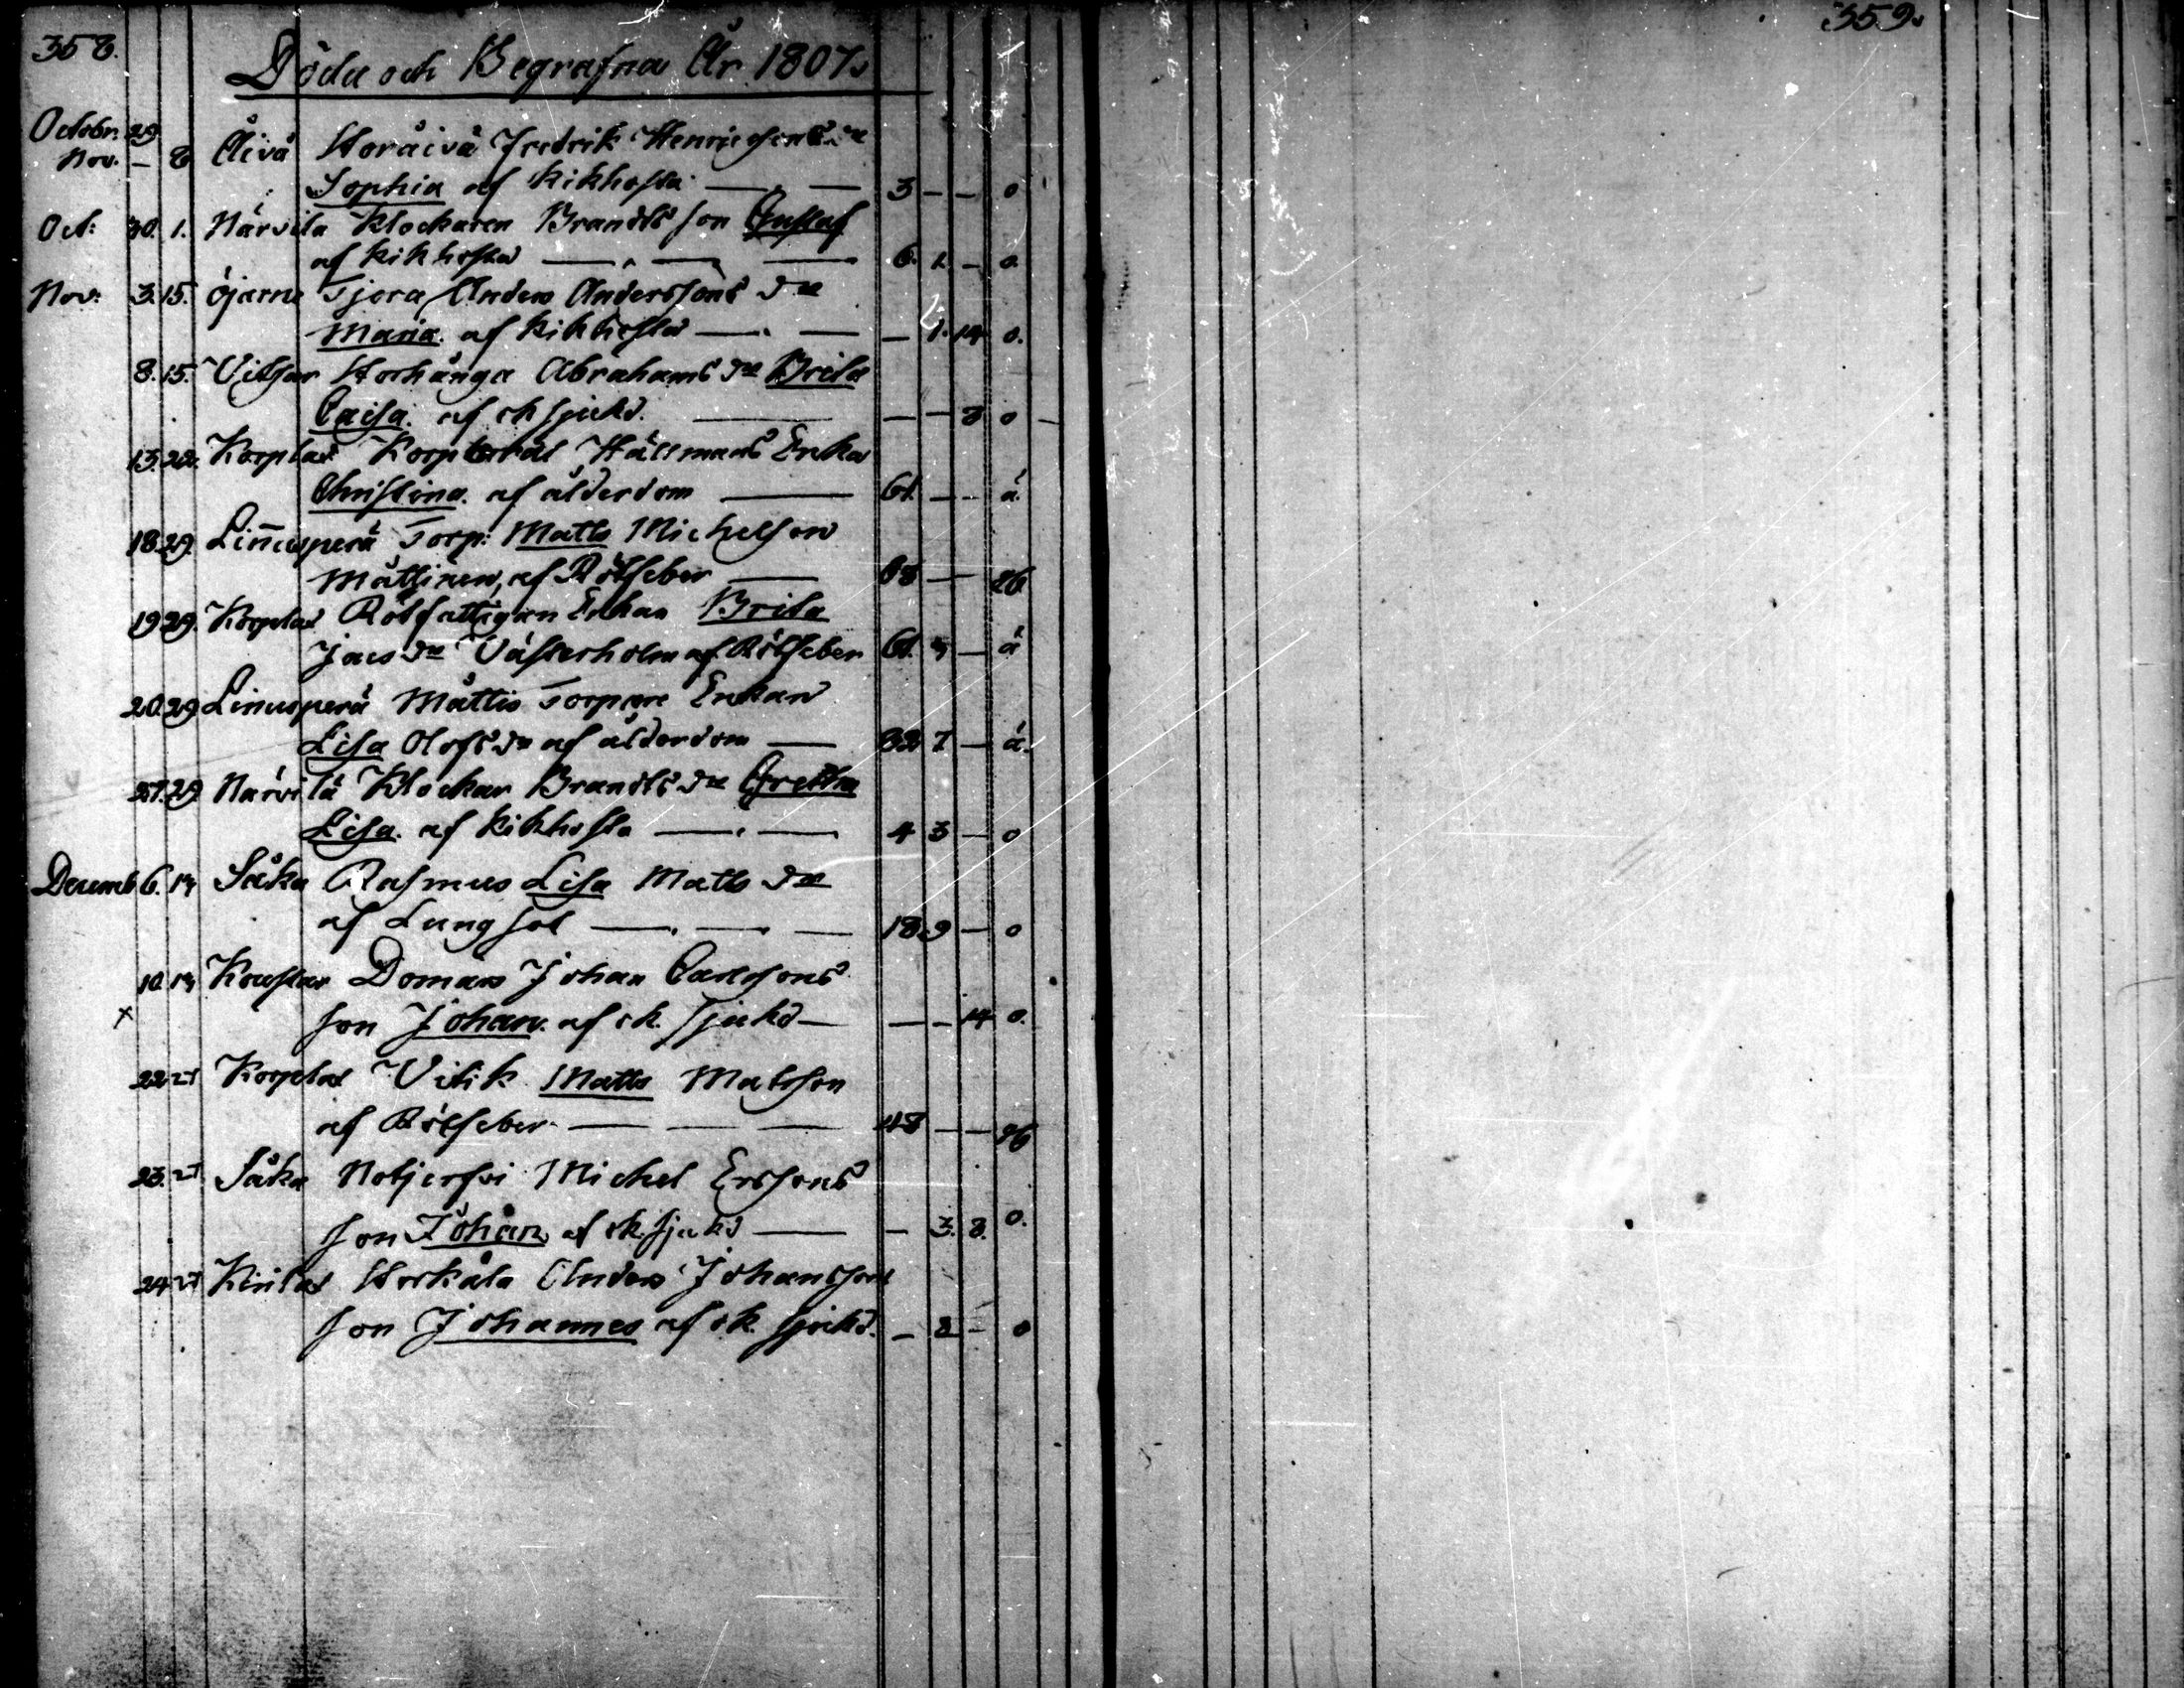 358.
359.
Döda och Begrafna År 1807.
Octobr. 29
Nov. - 8 Åivå Storåivå Fredrik Henricsons dr
Sophia af kikhosta 3 - - o
Oct: 30. 1. Närvilä Klockaren Brandts son Gustaf
af kikhosta 6. 2. - o.
Nov: 3. 15. Öjarne Tjera Anders Anderssons dr
Maria. af kikhosta - 1. 14 o.
8. 15. Vitsar Storhånga Abrahams dr Brita
Caisa. af ok sjukd. - - 8 o
13. 22. Korplax Korporal Hällmans Enka
Christina. af ålderdom 61. - - ä.
18. 29. Linnusperä Torp: Matts Michelson
Mattinen, af Rötfeber 68 - - eb
19 29. Korplax Rotfattigen Enkan Brita
Jacs dr Västerholm af Rötfeber 61. 9 - ä
20. 29 Linusperä Mattis Torpare Enkan
Lisa Olofs dr af ålderdom 82 7 - ä.
27. 29 Närvilä Klockar Brandts dr Gretha
Lisa. af kikhosta 4 3 - o
Decemb 6. 13 Såka Rasmus Lisa Matts dr
af Lungsot 18. 9 - o
10. 13 Domars Johan Carlssons
x son Johan. af ok. sjukd - - 14 o.
22 27 Korplax Vitik Matts Matsson
af Rötfeber. 48 - -
23. 27 Såka Michel Erssons
son Johan af ok. sjukd - 3. 8. o.
24 27 Kirilax Storkåla Anders Johanssons
son Johannes af ok. sjukd. - 2 - o